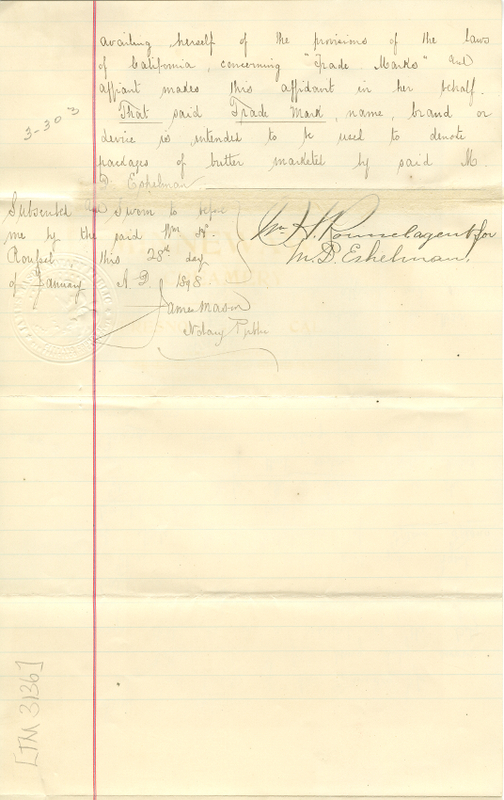 availing herself of the provisions of the laws
of California, concerning "Trade Marks" and
affiant makes this affidavit in her behalf.
That said Trade Mark, name, brand or
device is intended to be used to denote
packages of butter marketed by said M.
P. Eshelman
3-303
Subscribed and Sworn to before
me by the said Wm H.
Roussel this 28th day
of January A.D. 1898
James Mason
Notary Public
Wm H. Roussel agent for
M P Eshelman.
[TM 3136]